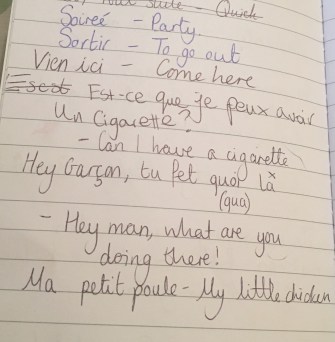 Toute suite - Quick
Soireé - Party.
Sortir - To go out
Vien ici - Come here
Est-ce que je peux avoir
Un Cigarette?
- Can I have a cigarette
Hey Garçon, tu fet quoi Là
(qua)
- Hey man, what are you
doing there!
Ma petit poule - My little chicken